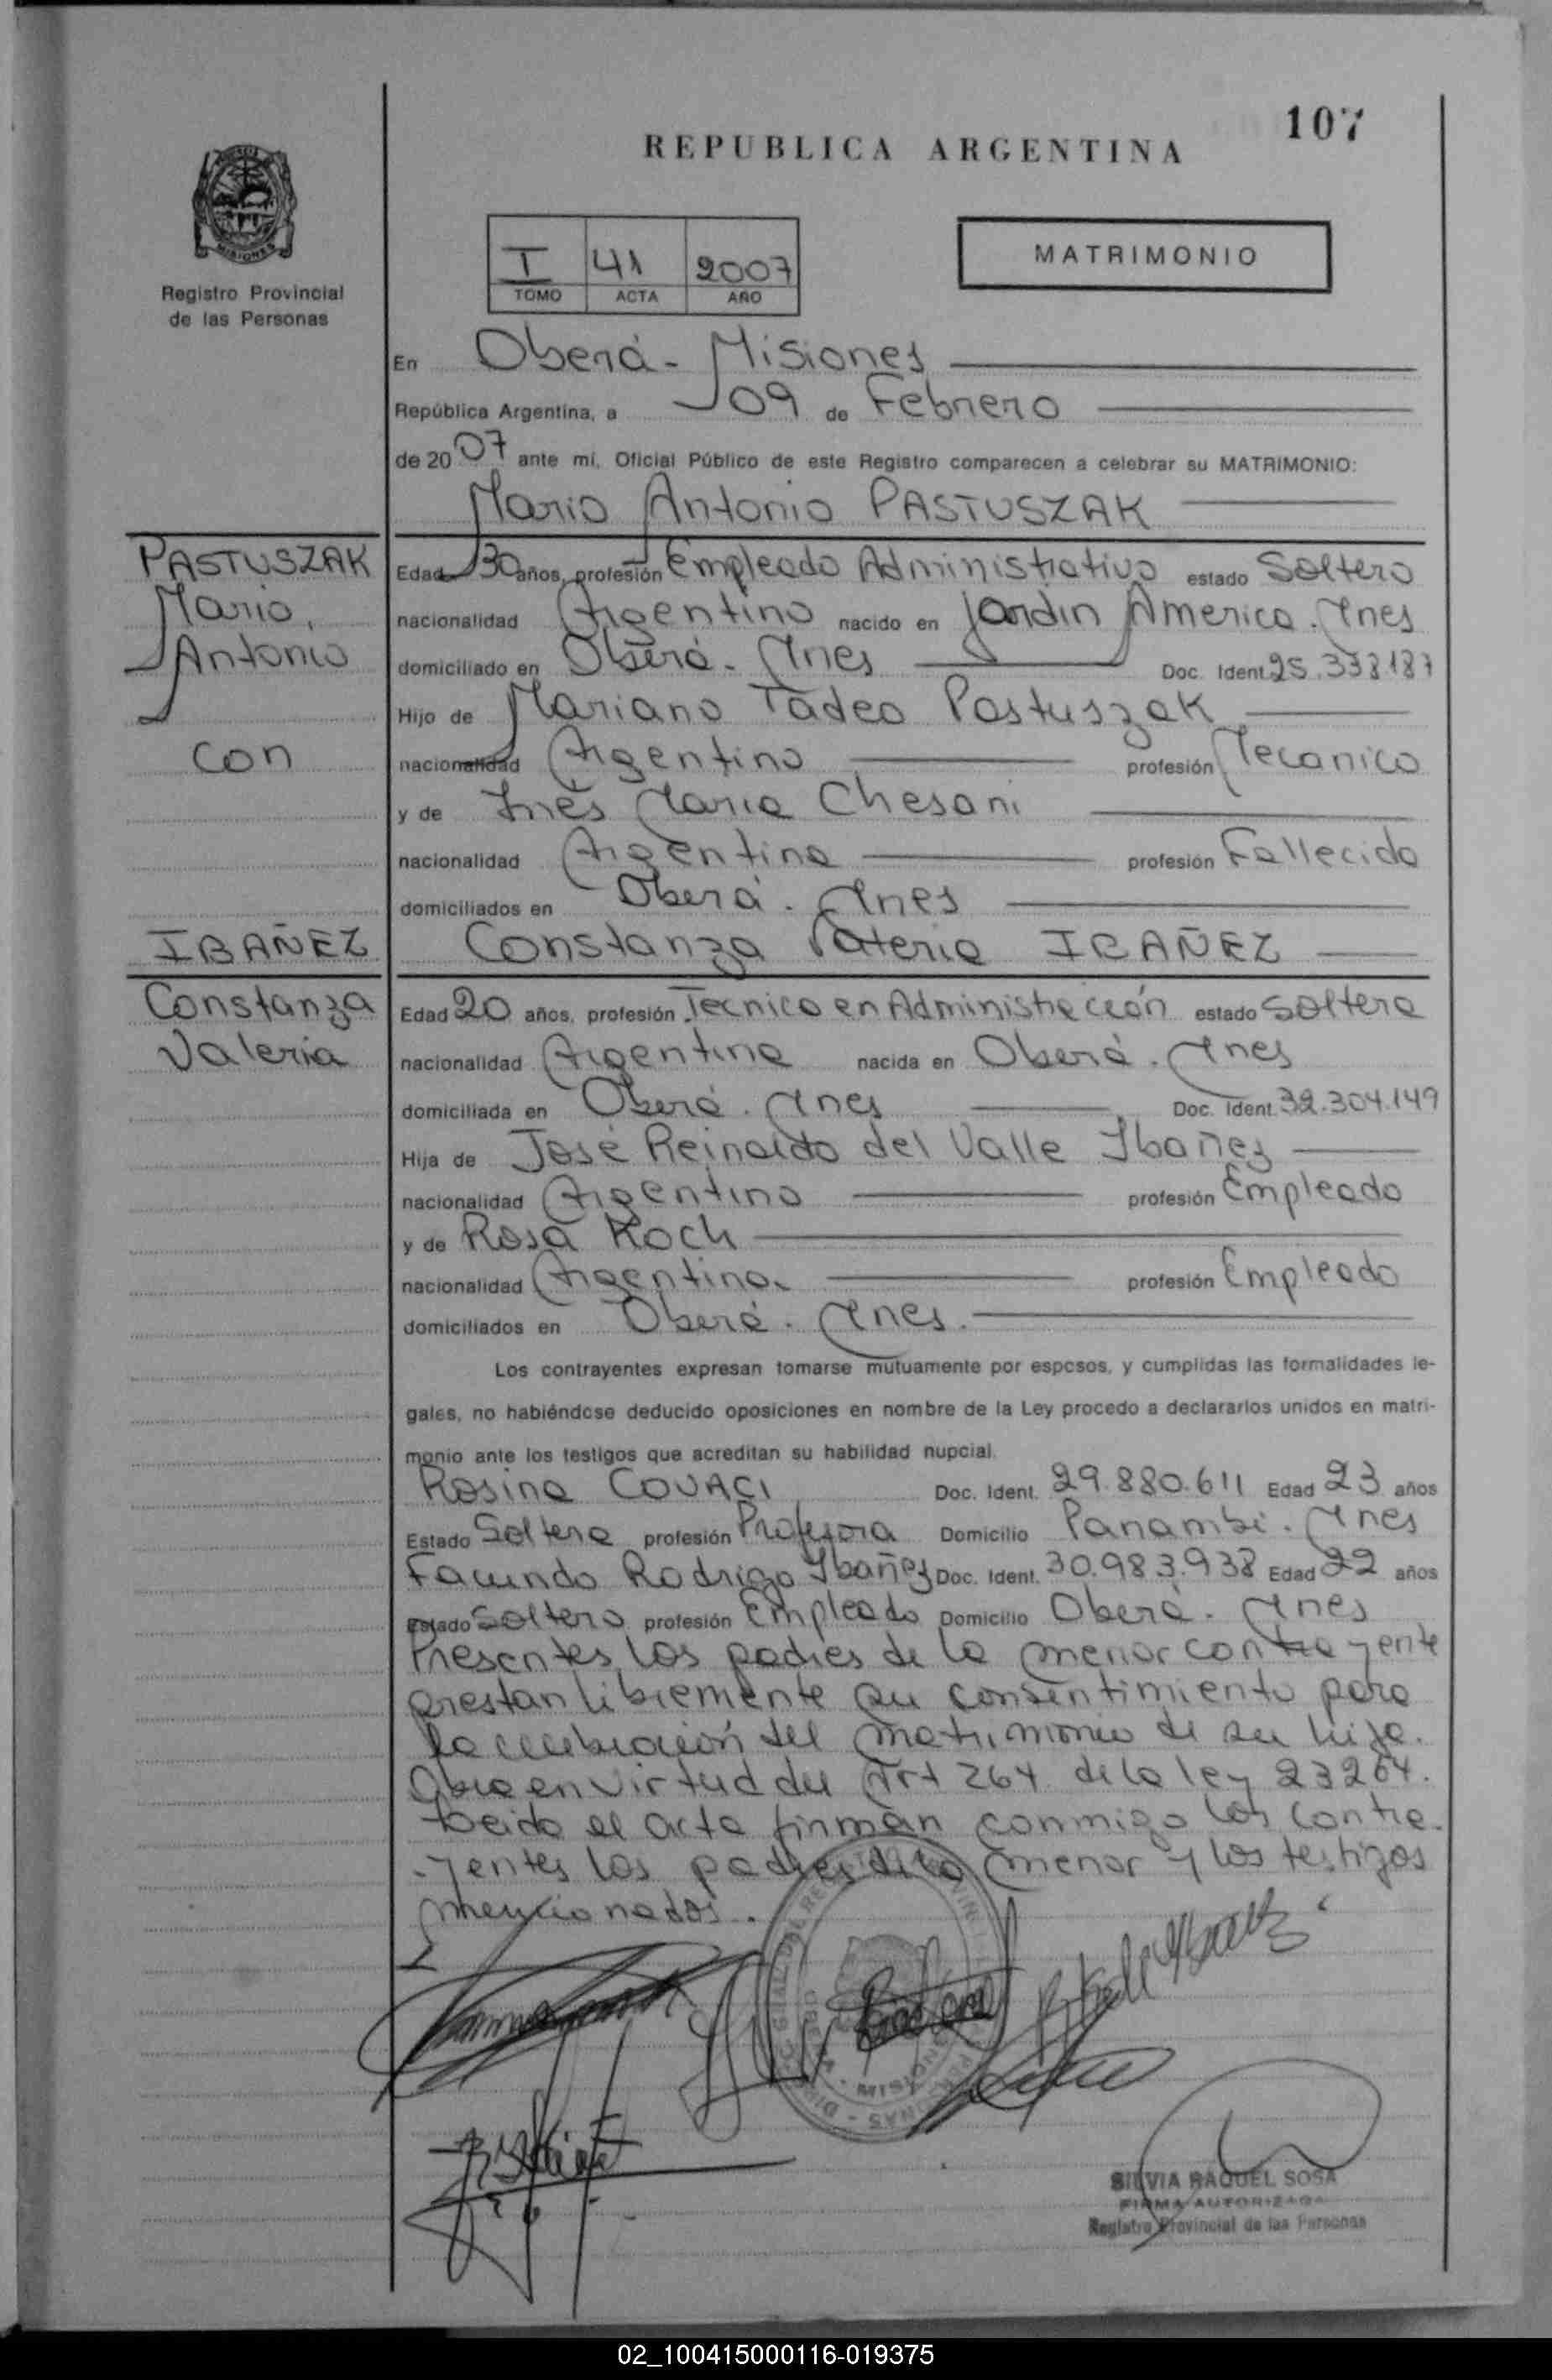 107
REPUBLICA ARGENTINA
MISIONES
Registro Provincial
de las Personas
I 41 2007
TOMO ACTA AÑO
MATRIMONIO
En Oberá - Misiones
República Argentina, a 09 de Febrero
de 2007 ante mí, Oficial Público de este Registro comparecen a celebrar su MATRIMONIO:
Mario Antonio PASTUSZAK
PASTUSZAK
Mario,
Antonio
con
IBAÑEZ
Constanza
Valeria
Edad 30 años, profesión Empleado Administrativo estado Soltero
nacionalidad Argentino nacido en Jardin America. Mnes
domiciliado en Oberá - Mnes Doc. Ident. 25.338.187
Hijo de Mariano Tadeo Pastuszak
nacionalidad Argentino profesión Mecanico
y de Inés Maria Chesani
nacionalidad Argentina profesión Fallecida
domiciliados en Oberá. Mnes
Constanza Valeria IBAÑEZ
Edad 20 años, profesión Tecnica en Administración estado Soltera
nacionalidad Argentina nacida en Oberá. Mnes
domiciliada en Oberá. Mnes Doc. Ident. 32.304.149
Hija de José Reinaldo del Valle Ibañez
nacionalidad Argentino profesión Empleado
y de Rosa Koch
nacionalidad Argentina profesión Empleada
domiciliados en Oberá. Mnes.
Los contrayentes expresan tomarse mutuamente por esposos, y cumplidas las formalidades le-
gales, no habiéndose deducido oposiciones en nombre de la Ley procedo a declararlos unidos en matri-
monio ante los testigos que acreditan su habilidad nupcial.
Rosina COVACI Doc. Ident. 29.880.611 Edad 23 años
Estado Soltera profesión Profesora Domicilio Panambi. Mnes
Facundo Rodrigo Ibañez Doc. Ident. 30.983.938 Edad 22 años
Estado Soltero profesión Empleado Domicilio Oberá. Mnes
Presentes los padres de la menor contrayente
prestan libremente su consentimiento para
la celebración del matrimonio de su hija.
Obra en virtud del Art 264 de la ley 23264.
Leida el acta firman conmigo los contra-
-yentes los padres de la menor y los testigos
mencionados.
SILVIA RAQUEL SOSA
FIRMA AUTORIZADA
Registro Provincial de las Personas
02_100415000116-019375